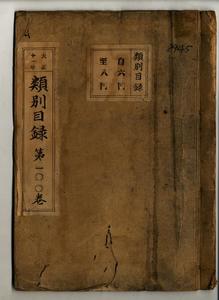 類別目録
自六門
至八門
3945
大正
十一年
類別目録
第一〇〇卷